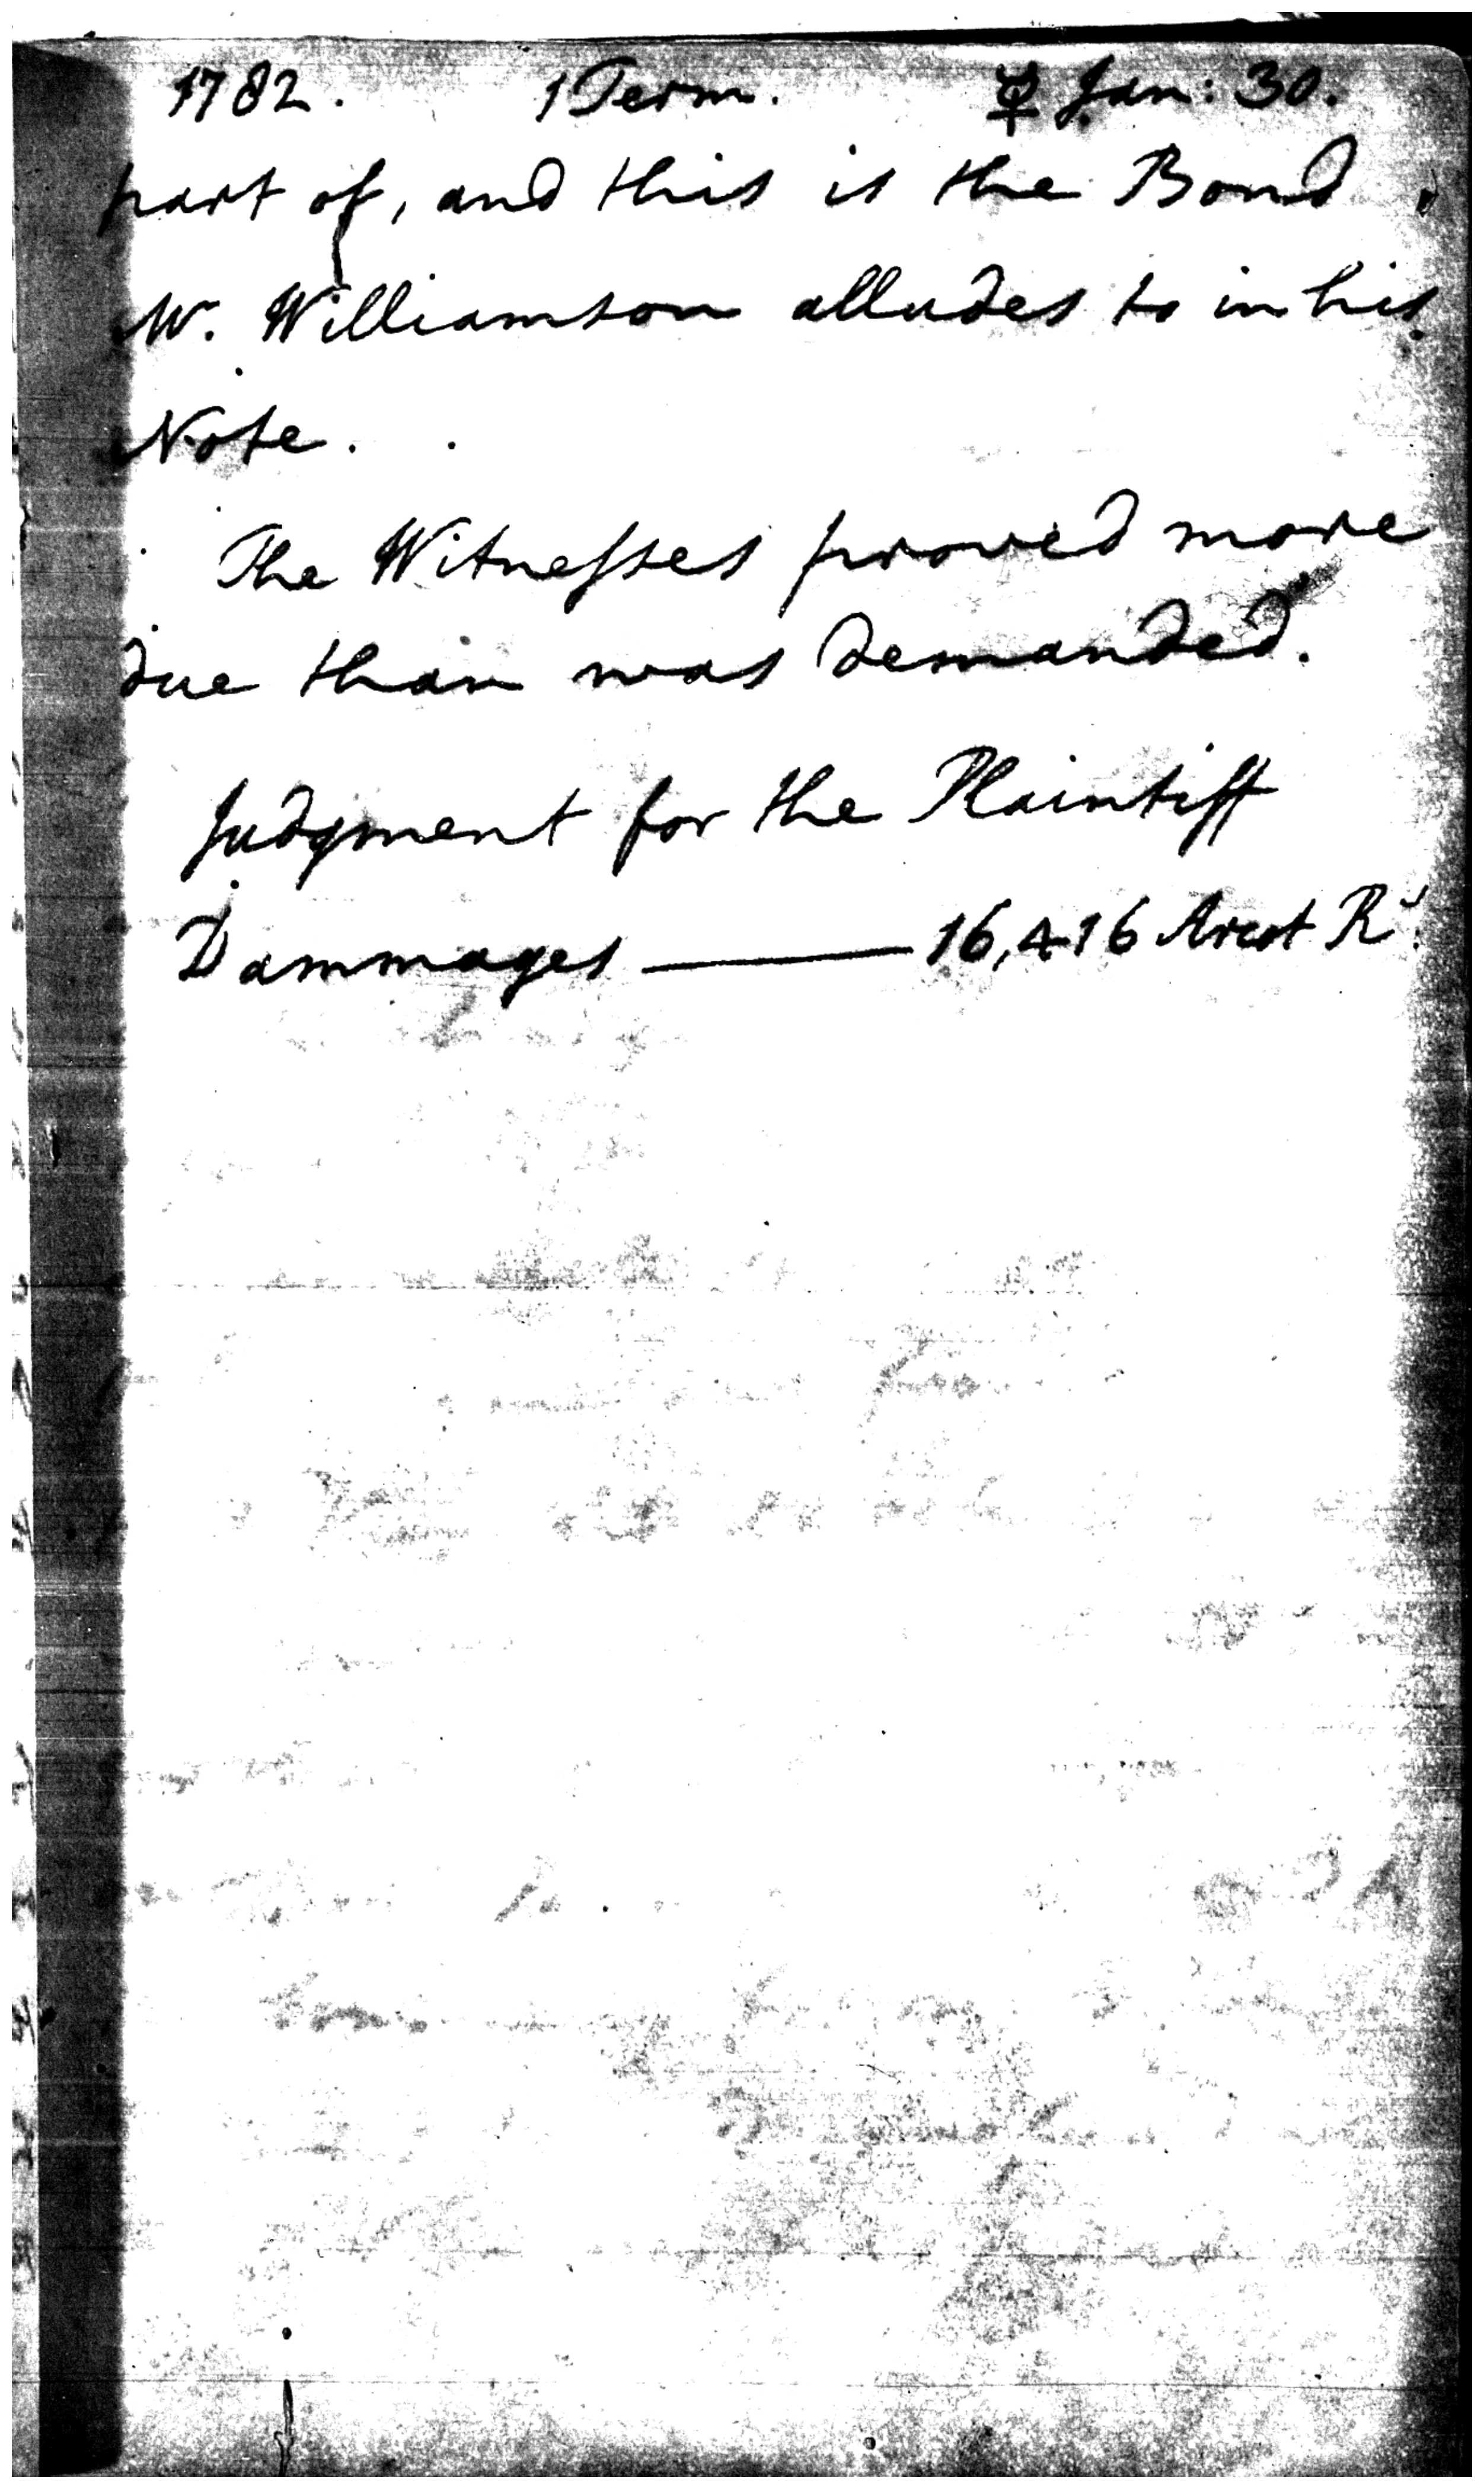 1782. 1 Term. ☿ Jan: 30.
part of, and this is the Bond
Mr. Williamson alludes to in his
Note.
The Witnesses proved more
due than was demanded.
Judgment for the Plaintiff
Dammages — 16,416 Arcot Rs.